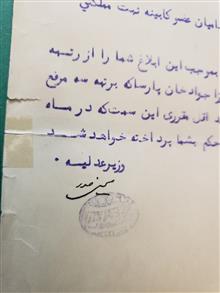 امیان عضو کابینه ثبت مملکتی
بموجب این ابلاغ شما را از رتبه
جوادخان پارسا که برتبه سه مرفع
اقل مقرری این سمت که در ماه
حکم بشما پرداخته خواهد شد
وزیر عدلیه .
محسن صدر